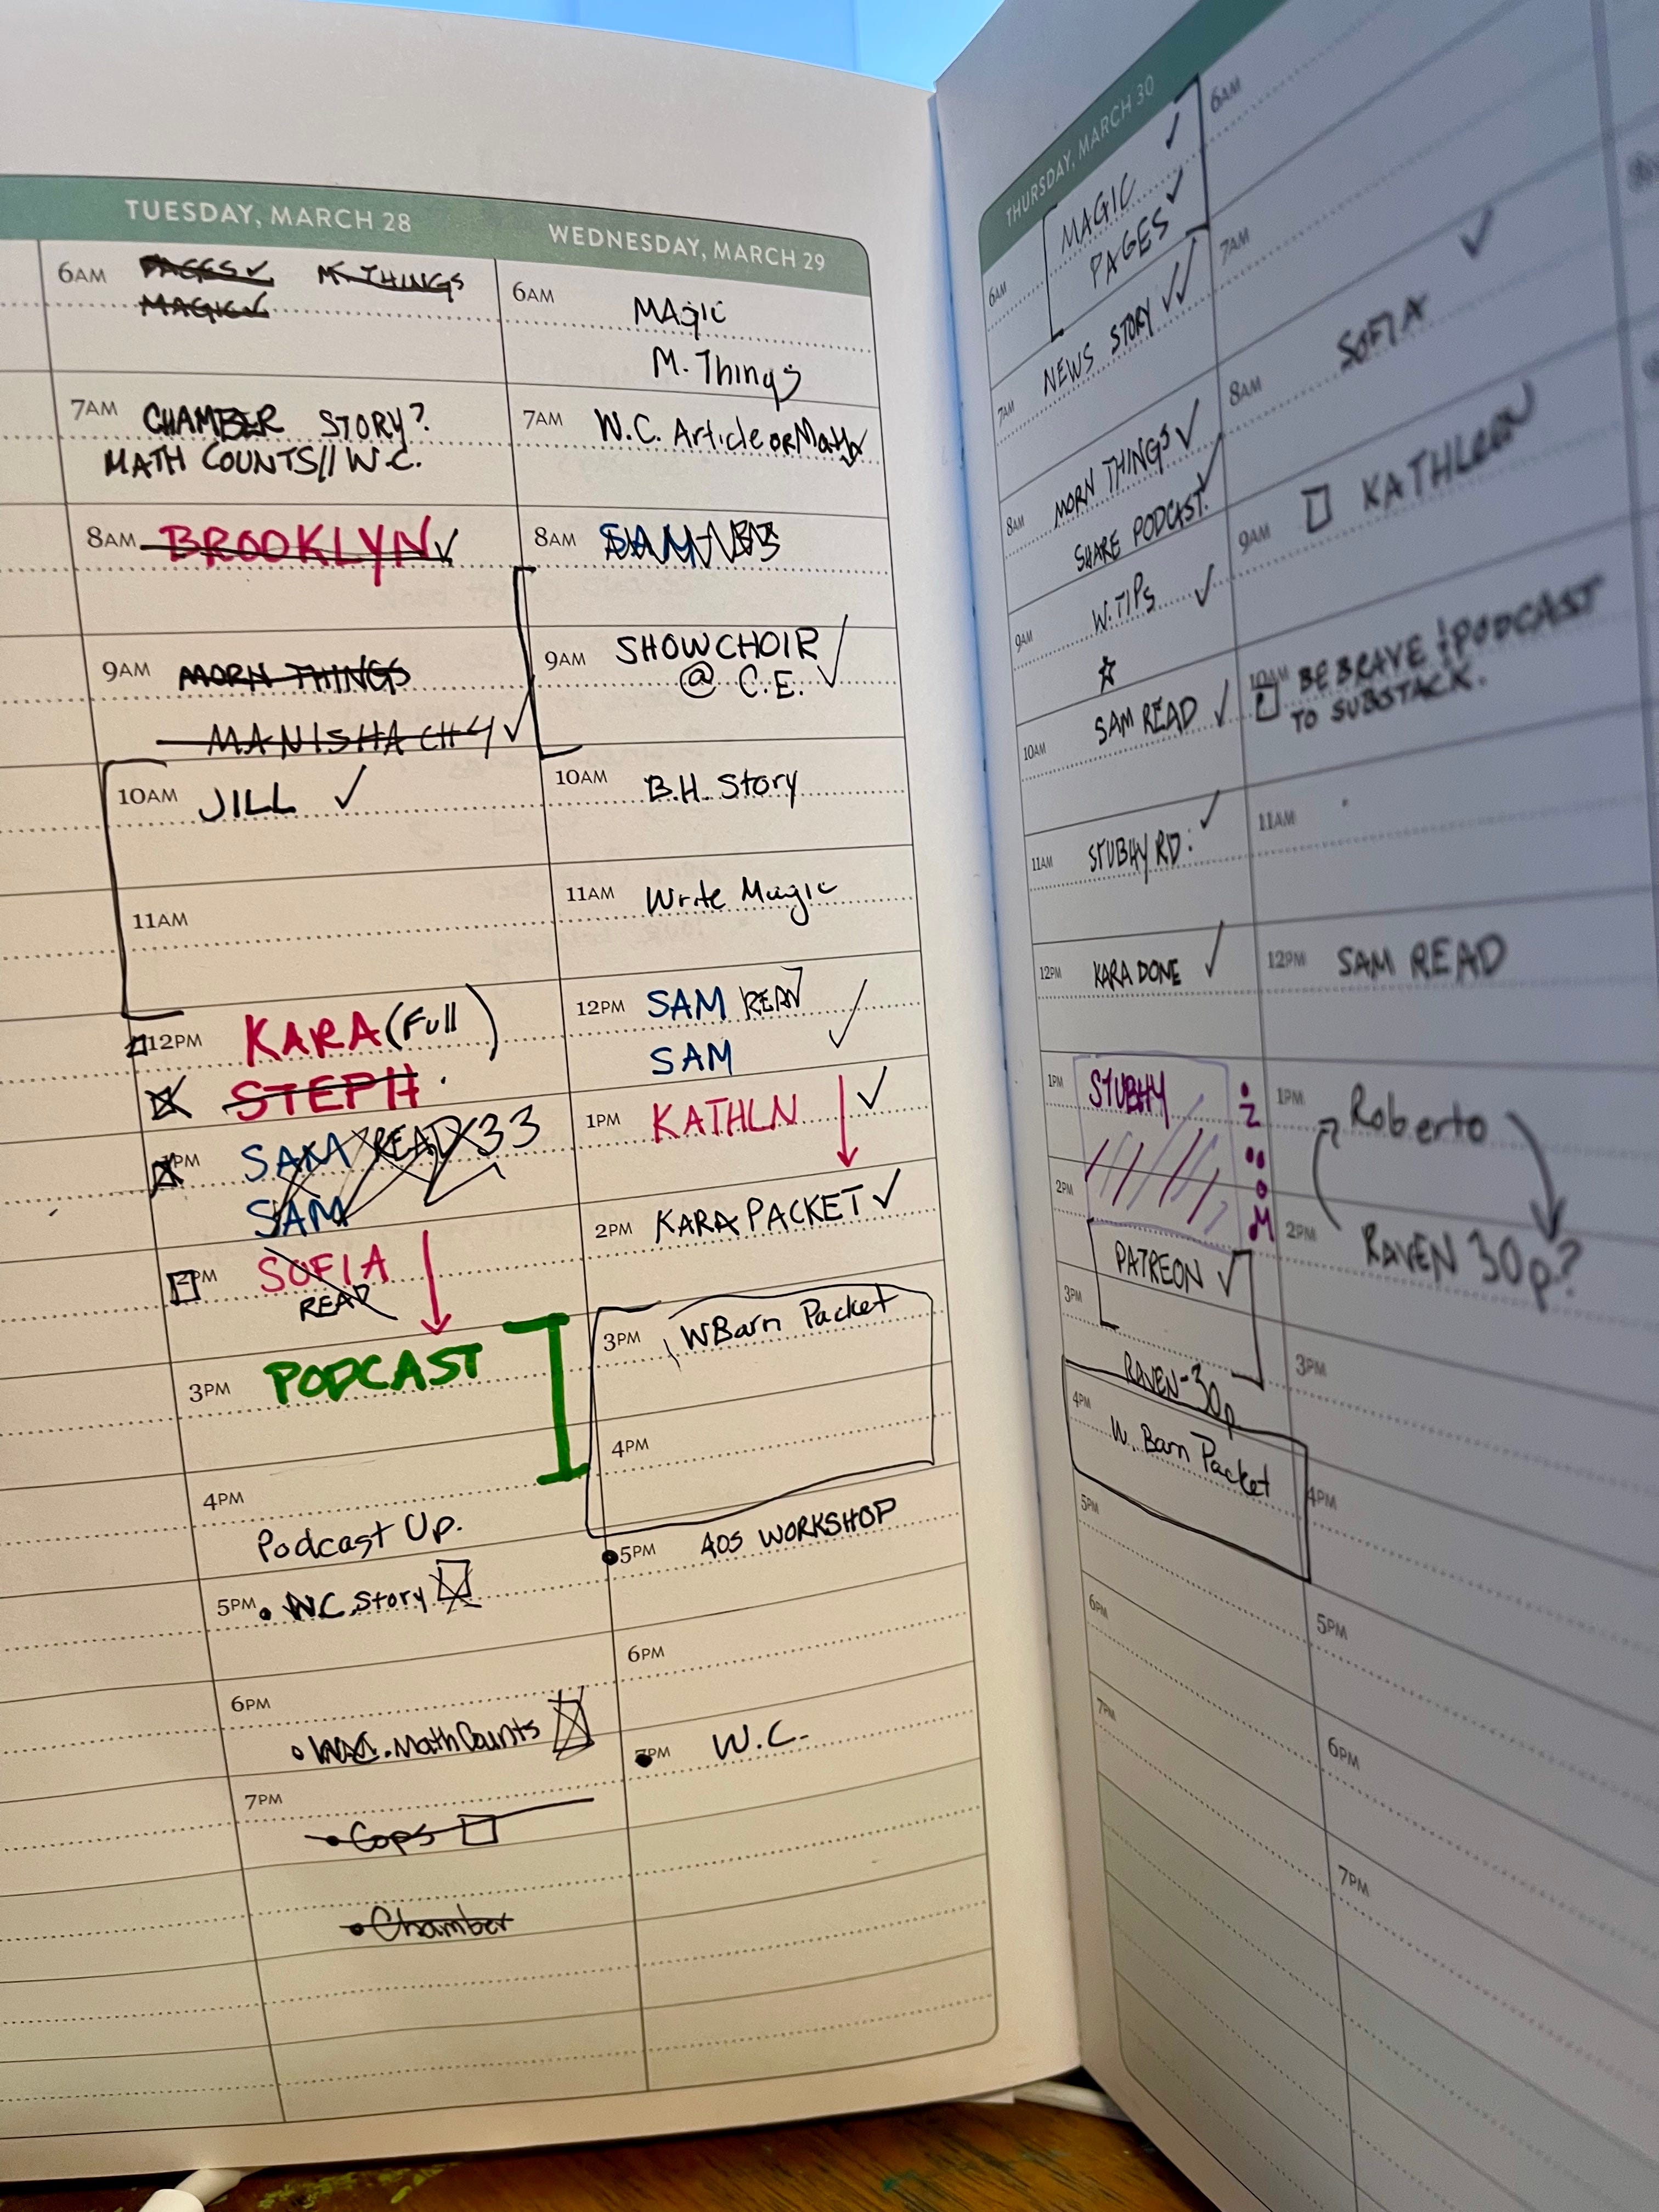 TUESDAY, MARCH 28
6AM PAGES✓ M. THINGS
MAGIC✓
7AM CHAMBER STORY?
MATH COUNTS// W.C.
8AM BROOKLYN✓
9AM MORN THINGS
MANISHA CH4 ✓
10AM JILL ✓
11AM
12PM KARA (Full)
STEPH.
PM SAM READ 33
SAM
2PM SOFIA
READ
3PM PODCAST
4PM
Podcast Up.
5PM • W.C. Story
6PM
MathCounts
7PM
• Cops
• Chamber
WEDNESDAY, MARCH 29
6AM MAgic
M. Things
7AM W.C. Article or Math
8AM SAM
9AM SHOWCHOIR ✓
@ C.E. ✓
10AM B.H. Story
11AM Write Magic
12PM SAM READ
SAM ✓
1PM KATHLN ✓
2PM KARA PACKET ✓
3PM WBarn Packet
4PM
5PM AOS WORKSHOP
6PM
7PM W.C.
THURSDAY, MARCH 30
6AM MAGIC ✓
PAGES ✓
NEWS STORY ✓✓
7AM
MORN THINGS ✓
8AM
SHARE PODCAST. ✓
W. TIPS ✓
9AM
☆
SAM READ ✓
10AM
11AM STUBHY RD. ✓
12PM KARA DONE ✓
1PM STUBHY
2PM
PATREON ✓
3PM
RAVEN-30p
4PM W. Barn Packet
5PM
6PM
7PM
6AM
7AM ✓
SOFIA
8AM
KATHLEEN
9AM
10AM BE BRAVE PODCAST
TO SUBSTACK.
11AM
12PM SAM READ
1PM Roberto
2PM RAVEN 30p?
3PM
4PM
5PM
6PM
7PM